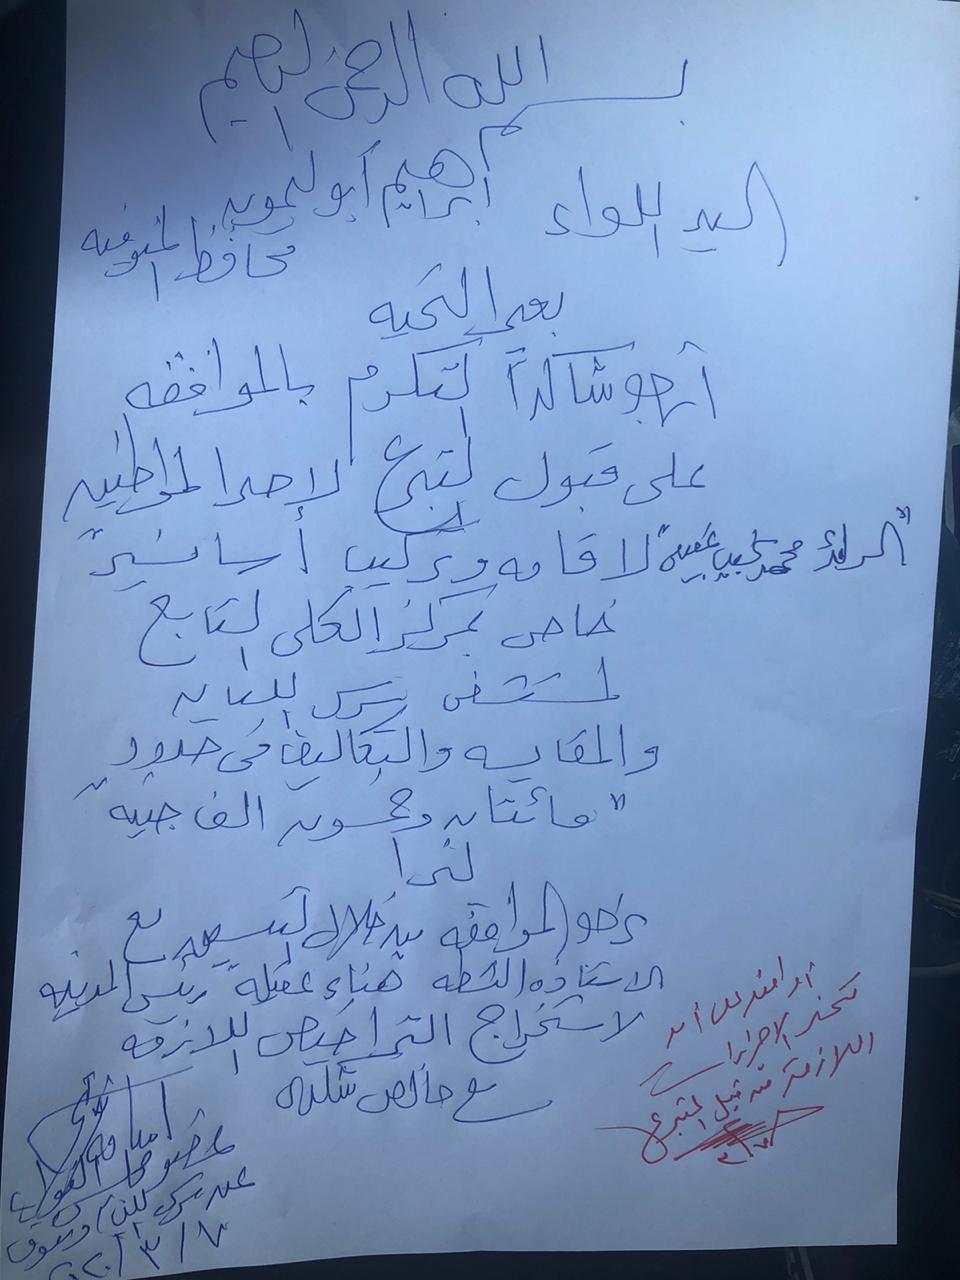 بسم الله الرحمن الرحيم
السيد اللواء ابراهيم أبو ليمون
محافظ المنوفيه
بعد التحيه
أرجو شاكراً التكرم بالموافقه
على قبول التبرع لاحد المواطنين
"الرائد محمد لاقامه وتركيب أسانسير"
خاص بمركز الكلى التابع
لمستشفى سرس الليان
والمقايسه والتكاليف فى حدود
"مائتان وخمسون الف جنيه"
لذا
نرجو الموافقه من خلال التنسيق مع
الاستاذه النشطه هناء عقيله رئيس المدينه
لاستخراج التراخيص اللازمه
مع خالص شكرى
أسامه
عضو مجلس النواب
عن سرس الليان ومنوف
٢٠٢٠/٣/٧
تتخذ الاجراءات
اللازمة من قبل المتبرع